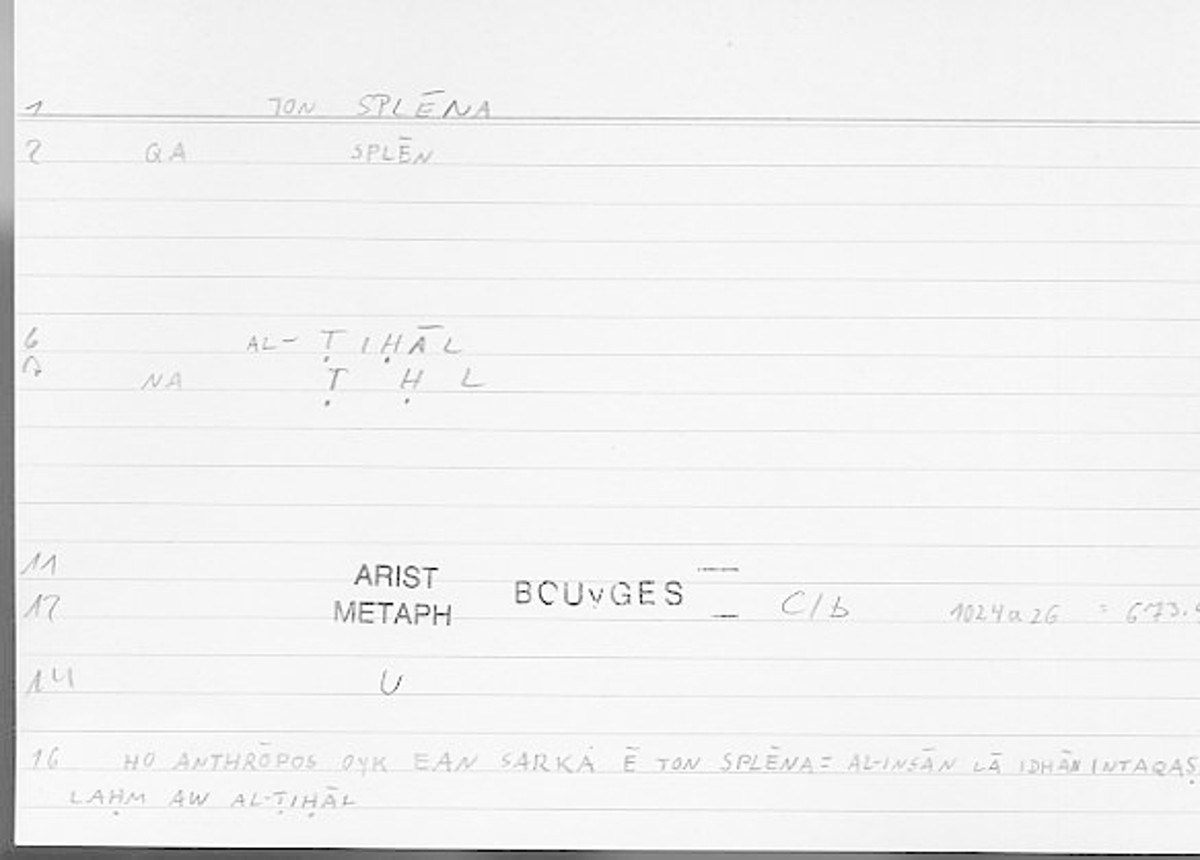 1 TON SPLĒNA
2 QA SPLĒN
6 AL-ṬIḤĀL
NA Ṭ Ḥ L
11 ARIST
12 METAPH BOUyGES C/b 1024a26 = 673.
14 U
16 HO ANTHRŌPOS OYK EAN SARKA Ē TON SPLĒNA = AL-INSĀN LĀ IDHĀN INTAQAṢ
LAḤM AW AL-ṬIḤĀL